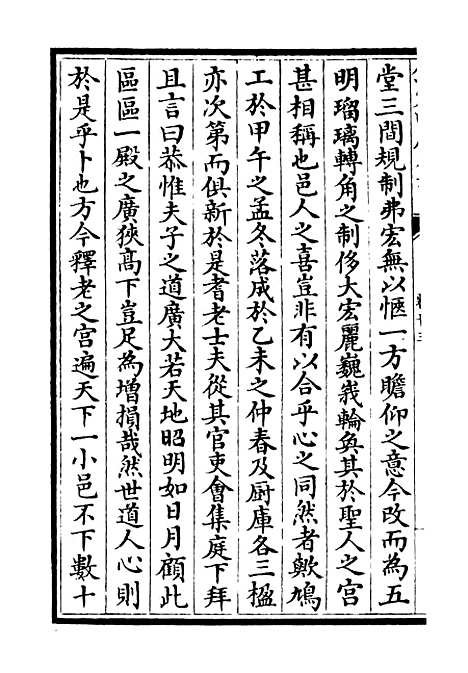 堂三間規制弗宏無以愜一方瞻仰之意今改而為五
明瑠璃轉角之制侈大宏麗巍峩輪奐其於聖人之宮
甚相稱也邑人之喜豈非有以合乎心之同然者歟鳩
工於甲午之孟冬落成於乙未之仲春及厨庫各三楹
亦次第而俱新於是耆老士夫從其官吏會集庭下拜
且言曰恭惟夫子之道廣大若天地昭明如日月顧此
區區一殿之廣狹髙下豈足為增損哉然世道人心則
於是乎卜也方今釋老之宫遍天下一小邑不下數十